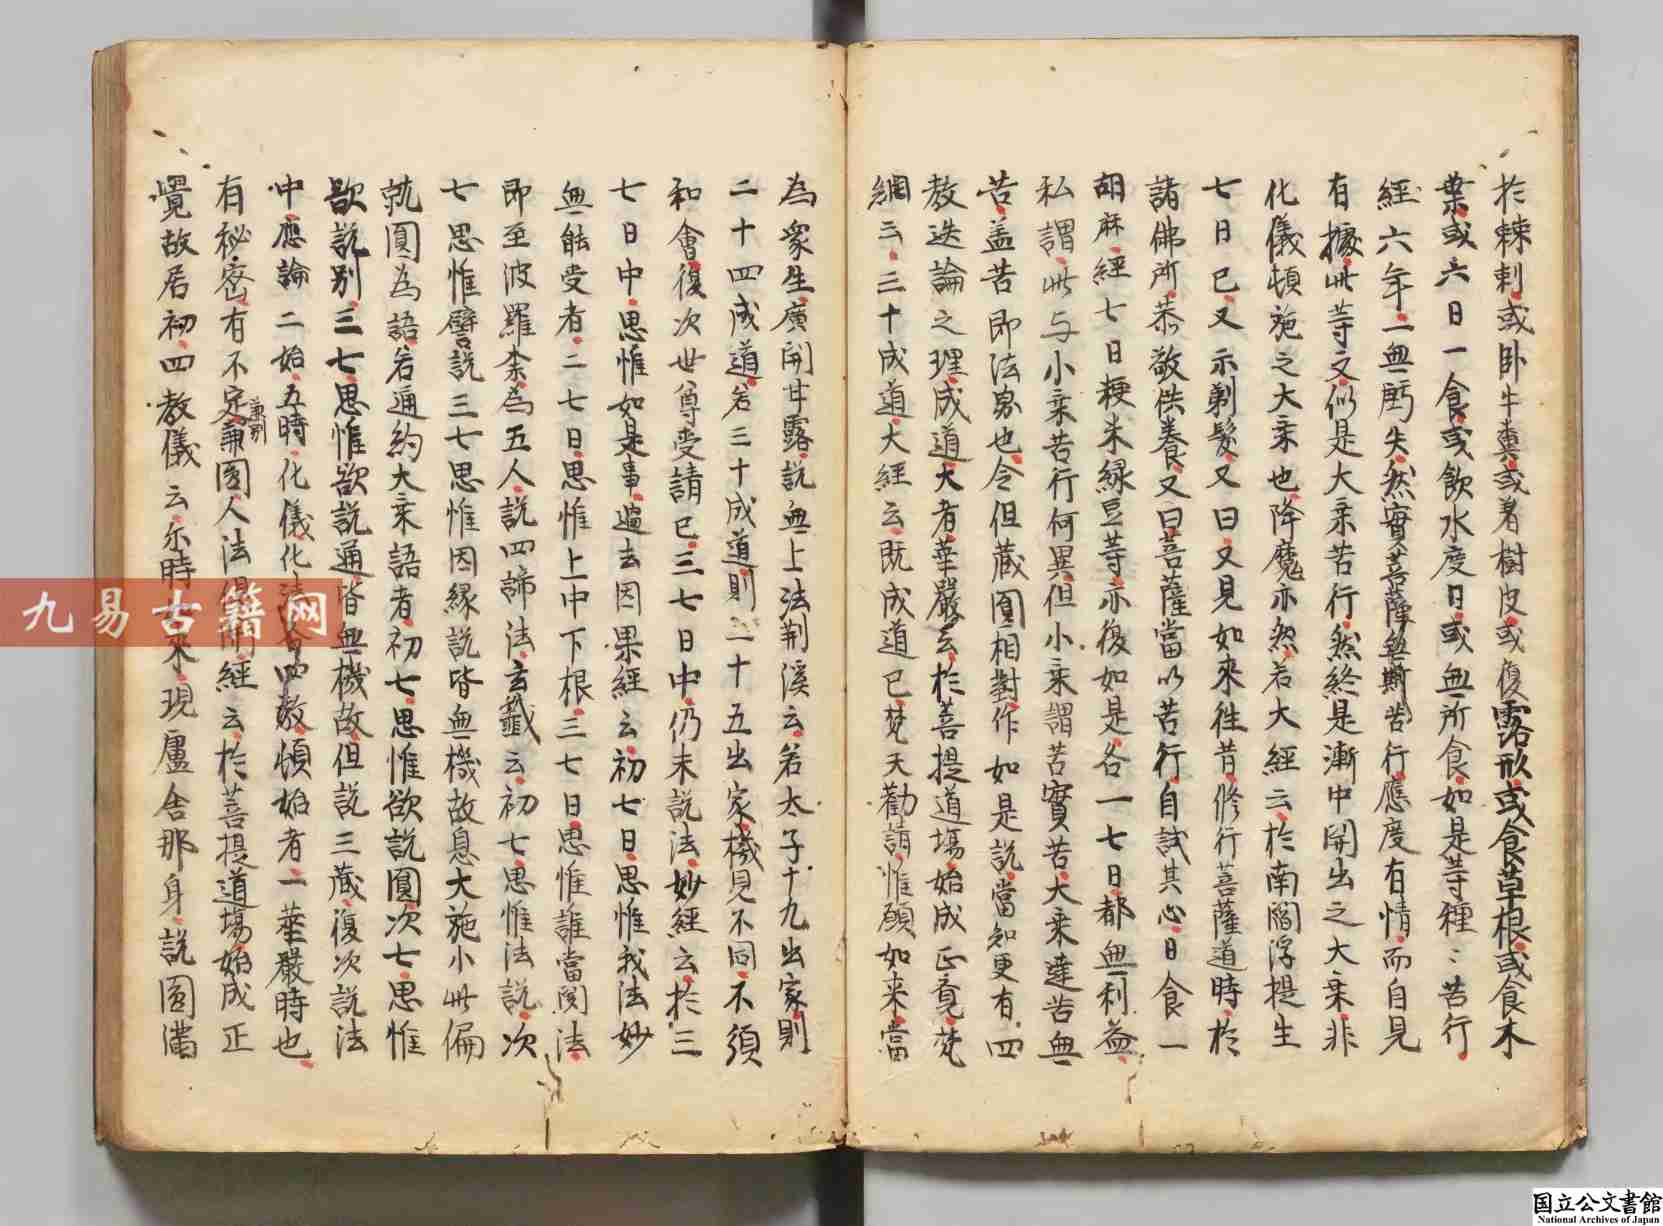 於棘刺或卧牛糞或着樹皮或復露形或食草根或食木
葉或六日一食或飲水度日或無所食如是等種〻苦行
經六年一無所失然實菩薩無斯苦行應度有情而自見
有據此等文似是大乗苦行然終是漸中開出之大乗非
化儀頓施之大乗也降魔亦然若大經云於南閻浮提生
七日已又示剃髮又曰又見如來往昔修行菩薩道時於
諸佛所恭敬供養又曰菩薩當以苦行自試其心日食一
胡麻經七日粳米緑豆等亦復如是各一七日都無利益
私謂此与小乗苦行何異但小乗謂苦實苦大乗達苦無
苦盖苦即法界也今但蔵圓相對作如是說當知更有四
教迭論之理成道大者華嚴云於菩提道場始成正覺梵
網云三十成道大經云既成道已梵天勸請惟願如来當
為衆生廣開甘露說無上法荆溪云若太子十九出家則
二十四成道若三十成道則二十五出家機見不同不須
和會復次世尊受請已三七日中仍未說法妙經云於三
七日中思惟如是事過去因果經云初七日思惟我法妙
無能受者二七日思惟上中下根三七日思惟誰當聞法
即至波羅柰為五人說四諦法玄籤云初七思惟法說次
七思惟譬說三七思惟因縁說皆無機故息大施小此偏
就圓為語若通約大乗語者初七思惟欲說圓次七思惟
欲說别三七思惟欲說通皆無機故但說三蔵復次說法
中應論二始五時化儀化四教頓始者一華嚴時也
有秘密有不定兼圓人法經云於菩提道場始成正
兼别
覺故居初四教儀云尓時來現盧舎那身說圓滿
九易古籍网
国立公文書館
National Archives of Japan